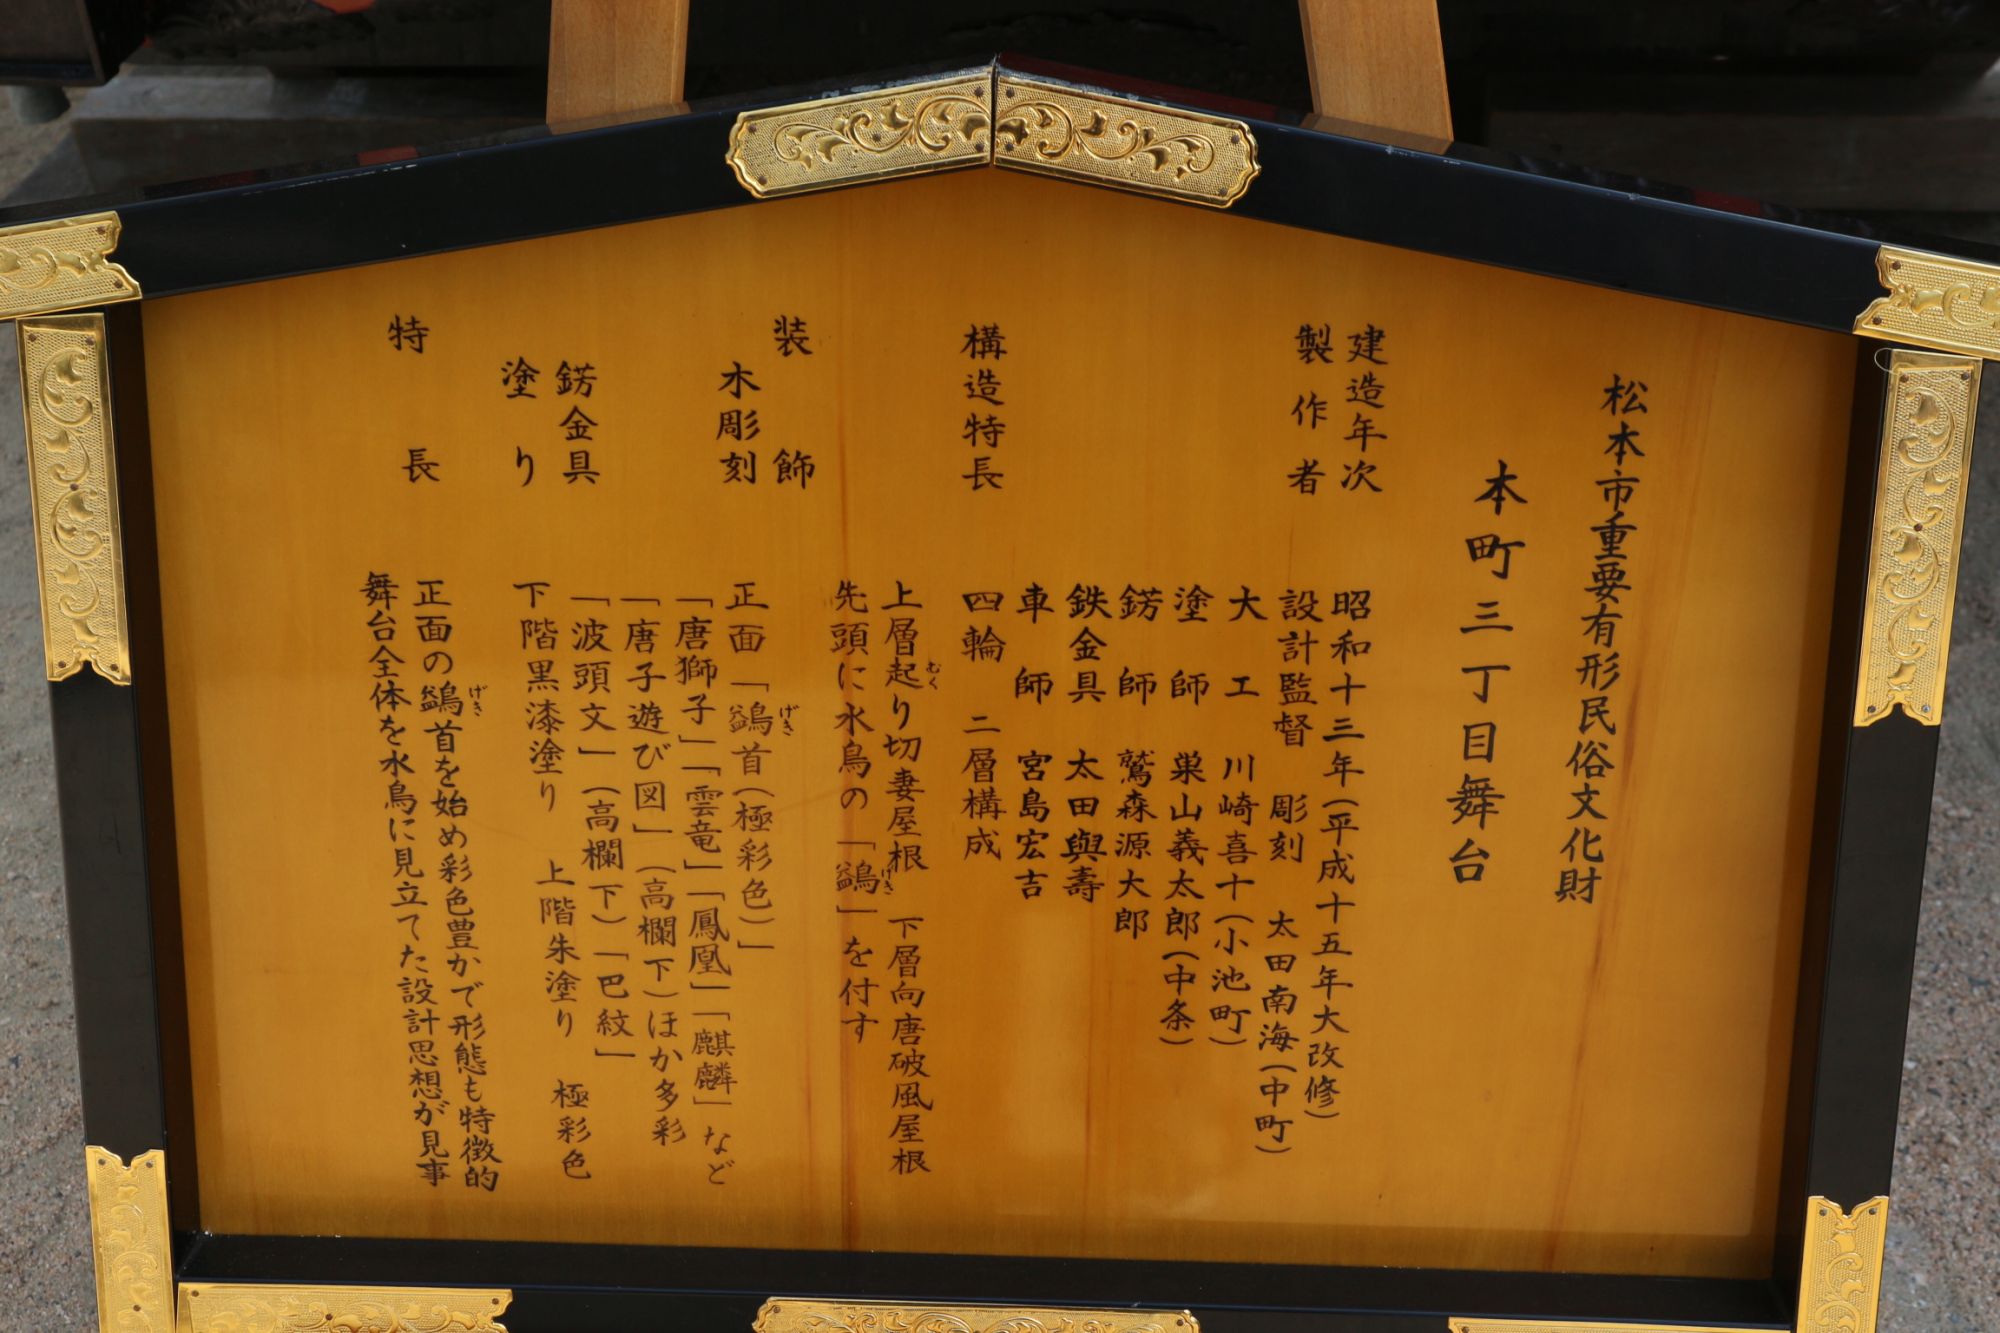 松本市重要有形民俗文化財
本町三丁目舞台
建造年次 昭和十三年(平成十五年大改修)
製作者 設計監督 彫刻 太田南海(中町)
大工 川崎喜十(小池町)
塗師 巣山義太郎(中条)
錺師 鷲森源大郎
鉄金具 太田與壽
車師 宮島宏吉
構造特長 四輪 二層構成
上層起り切妻屋根 下層向唐破風屋根
むく
先頭に水鳥の「鷁」を付す
げき
装飾
木彫刻 正面「鷁首(極彩色)」
げき
「唐獅子」「雲竜」「鳳凰」「麒麟」など
「唐子遊び図」(高欄下)ほか多彩
錺金具 「波頭文」(高欄下)「巴紋」
塗り 下階黒漆塗り 上階朱塗り 極彩色
特長 正面の鷁首を始め彩色豊かで形態も特徴的
げき
舞台全体を水鳥に見立てた設計思想が見事